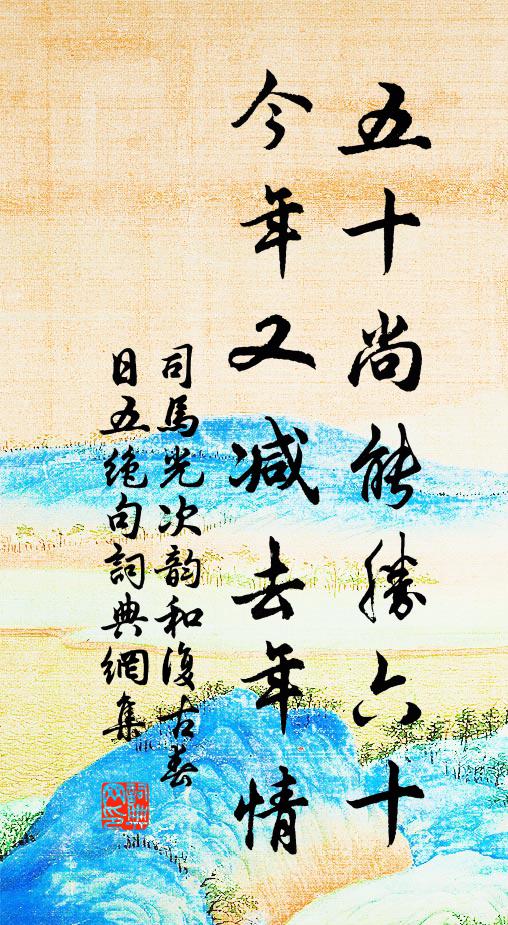 五十尚能勝六十
今年又减去年情
司馬光次韵和復古春
日五絶句詞典網集